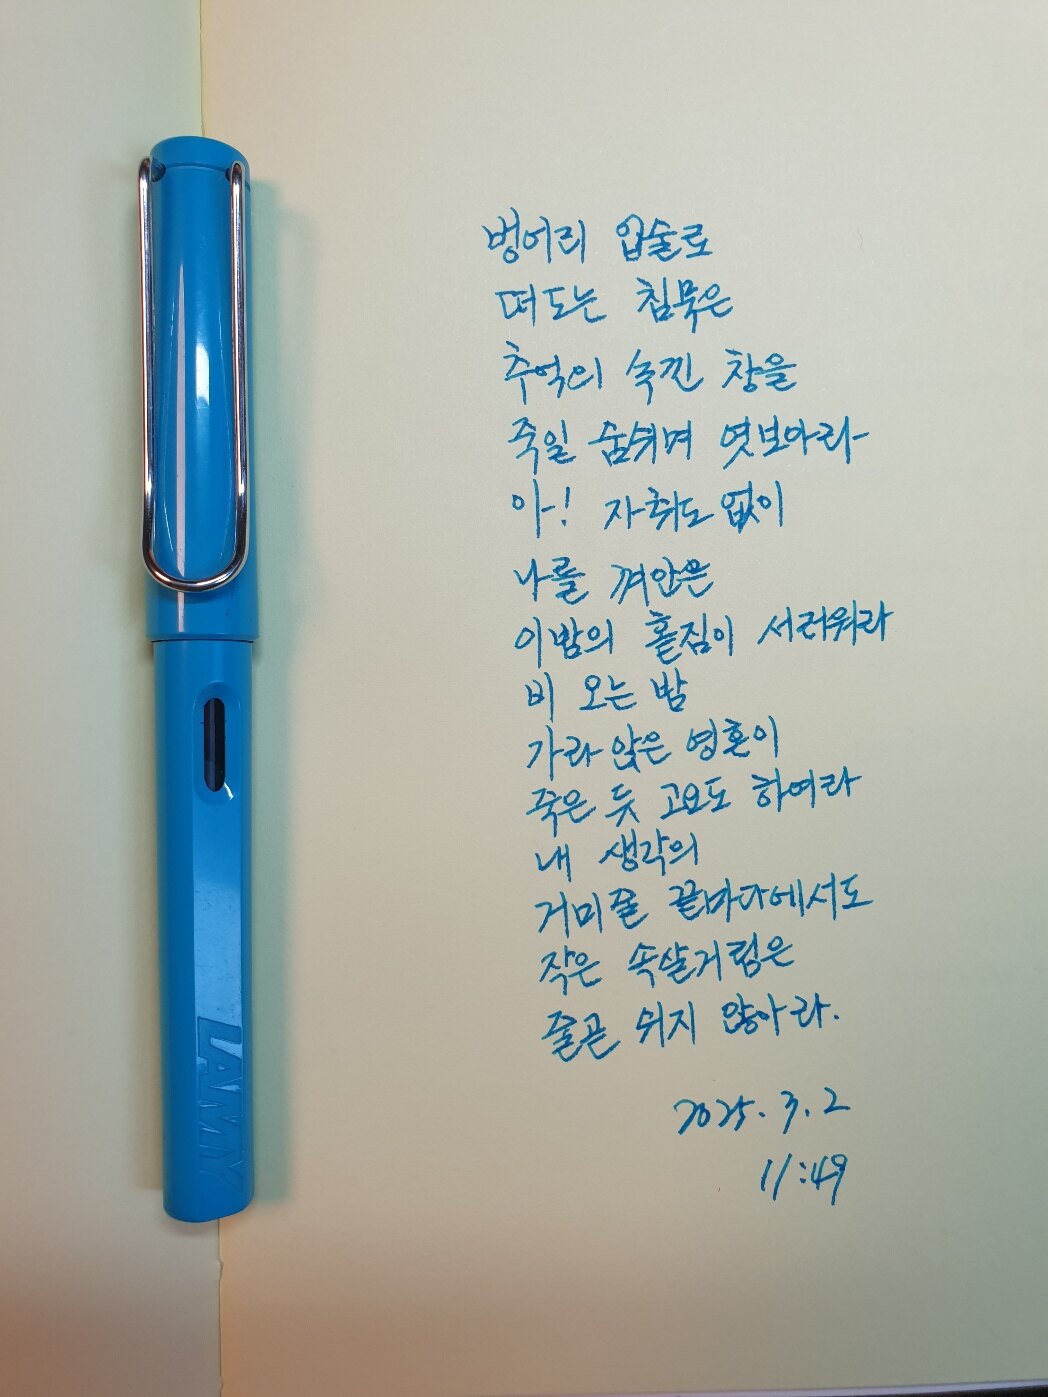 LAMY
벙어리 입술로
떠도는 침묵은
추억의 녹낀 창을
죽일 숨쉬며 엿보아라
아! 자취도 없이
나를 껴안은
이 밤의 홑짐이 서러워라
비 오는 밤
가라앉은 영혼이
죽은 듯 고요도 하여라
내 생각의
거미줄 끝마다에서도
작은 속살거림은
줄곧 쉬지 않아라.
2025. 3. 2
11:49